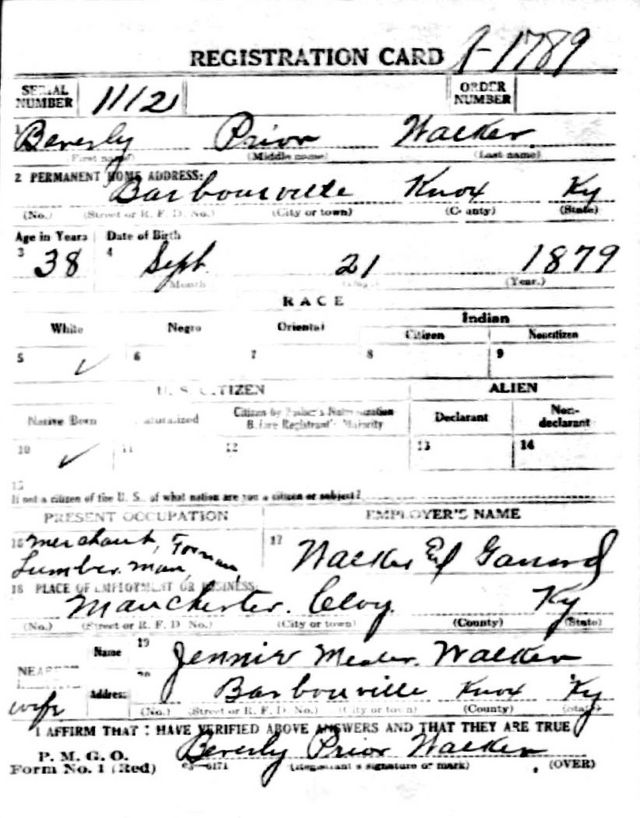 REGISTRATION CARD 1-1789
SERIAL NUMBER 11121 ORDER NUMBER
1 Beverly Prior Walker
(First name) (Middle name) (Last name)
2 PERMANENT HOME ADDRESS:
Barbourville Knox Ky
(No.) (Street or R. F. D. No.) (City or town) (County) (State)
Age in Years Date of Birth
3 38 4 Sept 21 1879
Month Day (Year.)
RACE
White Negro Oriental Indian
Citizen Noncitizen
5 ✓ 6 7 8 9
U. S. CITIZEN ALIEN
Native Born Naturalized Citizen by Father's Naturalization Before Registrant's Majority Declarant Non-declarant
10 ✓ 11 12 13 14
15
If not a citizen of the U. S., of what nation are you a citizen or subject?
PRESENT OCCUPATION EMPLOYER'S NAME
16 Merchant, Forman 17 Walker Garrard
Lumber man
18 PLACE OF EMPLOYMENT OR BUSINESS:
Manchester. Clay. Ky
(No.) (Street or R. F. D. No.) (City or town) (County) (State)
Name 19 Walker
NEAREST 20
Address Barbourville Knox Ky
wife (No.) (Street or R. F. D. No.) (City or town) (County) (State)
I AFFIRM THAT I HAVE VERIFIED ABOVE ANSWERS AND THAT THEY ARE TRUE
P. M. G. O. Beverly Prior Walker
Form No. 1 (Red) 03—6171 (Registrant's signature or mark) (OVER)